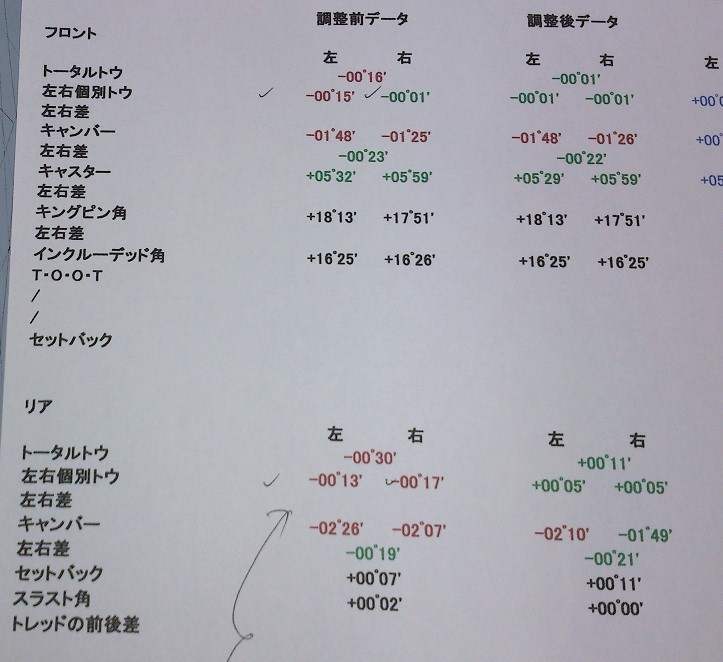 フロント 調整前データ 調整後データ
左 右 左 右 左
トータルトウ −00°16' −00°01'
左右個別トウ −00°15' −00°01' −00°01' −00°01'
左右差
キャンバー −01°48' −01°25' −01°48' −01°26' +00°
左右差 −00°23' −00°22'
キャスター +05°32' +05°59' +05°29' +05°59' +05
左右差
キングピン角 +18°13' +17°51' +18°13' +17°51'
左右差
インクルーデッド角 +16°25' +16°26' +16°25' +16°25'
T・O・O・T
/
/
セットバック
リア
左 右 左 右
トータルトウ −00°30' +00°11'
左右個別トウ −00°13' −00°17' +00°05' +00°05'
左右差
キャンバー −02°26' −02°07' −02°10' −01°49'
左右差 −00°19' −00°21'
セットバック +00°07' +00°11'
スラスト角 +00°02' +00°00'
トレッドの前後差